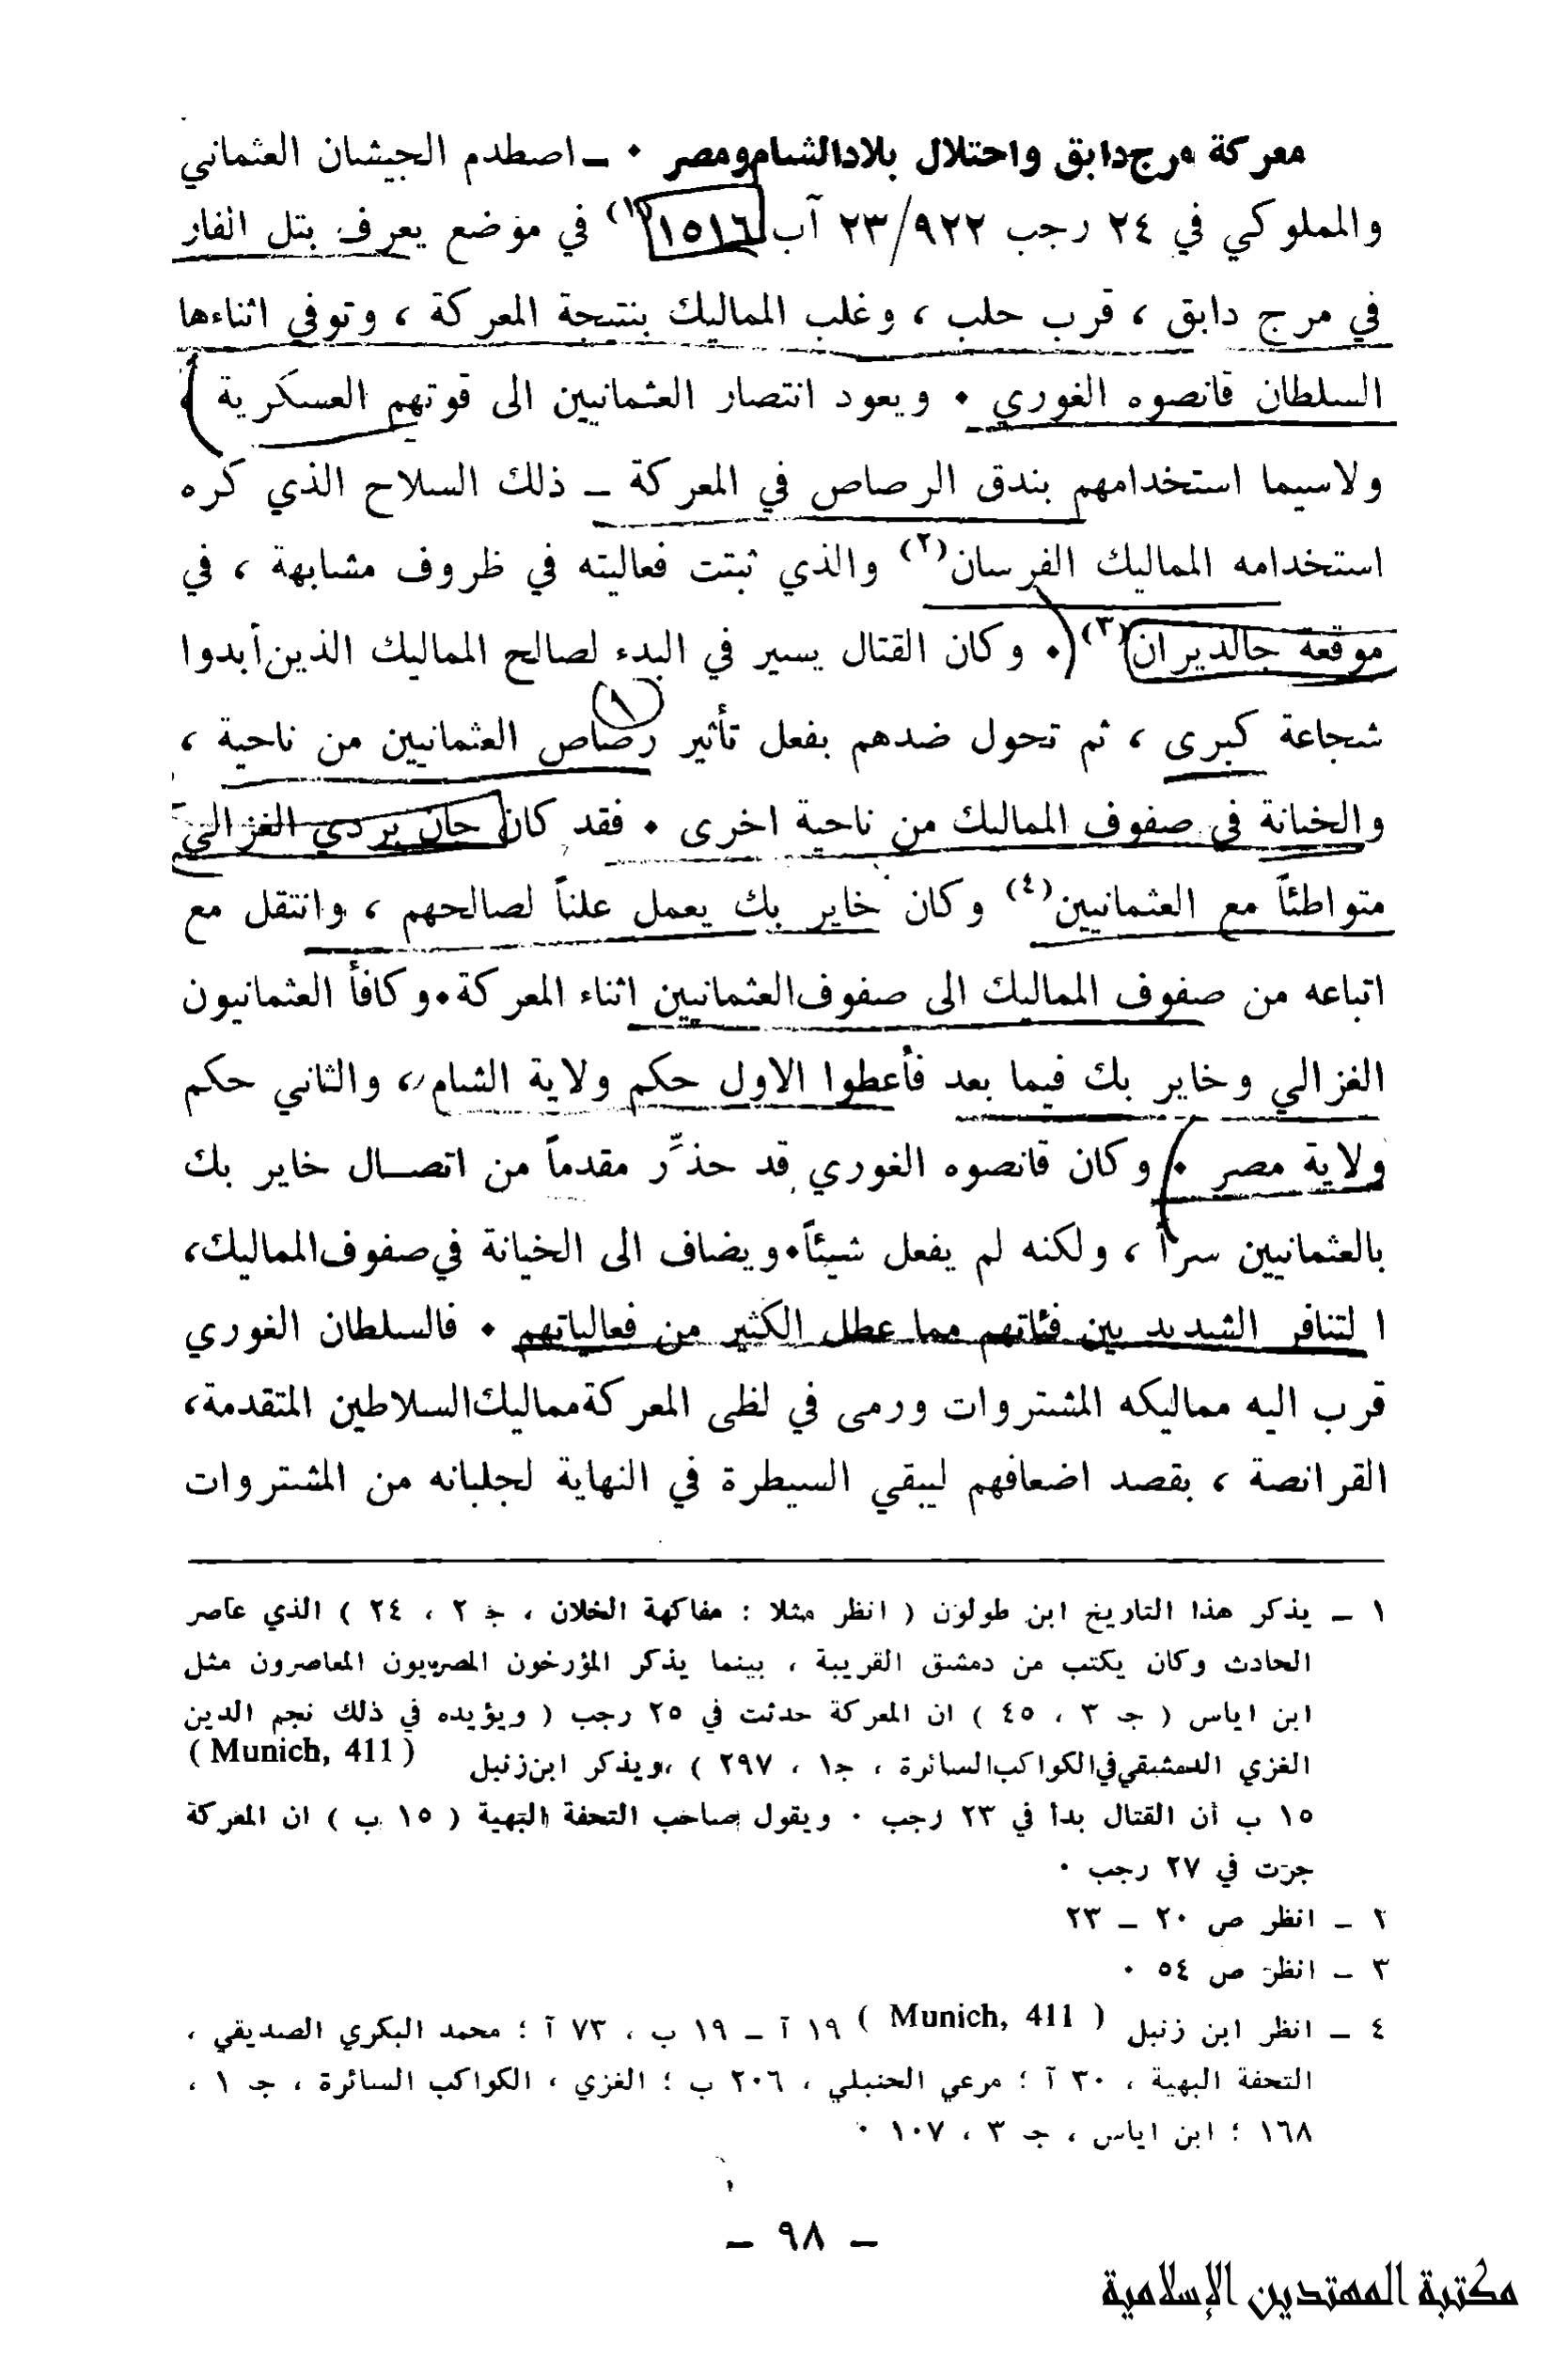 معركة مرج دابق واحتلال بلاد الشام ومصر ٠ ـ اصطدم الجيشان العثماني
والمملوكي في ٢٤ رجب ٩٢٢/ ٢٣ آب ١٥١٦(١) في موضع يعرف بتل الفار
في مرج دابق ، قرب حلب ، وغلب المماليك بنتيجة المعركة ، وتوفي اثناءها
السلطان قانصوه الغوري ٠ ويعود انتصار العثمانيين الى قوتهم العسكرية ،
ولاسيما استخدامهم بندق الرصاص في المعركة ـ ذلك السلاح الذي كره
استخدامه المماليك الفرسان(٢) والذي ثبتت فعاليته في ظروف مشابهة ، في
موقعة جالديران(٣) ٠ وكان القتال يسير في البدء لصالح المماليك الذين أبدوا
(١)
شجاعة كبرى ، ثم تحول ضدهم بفعل تأثير رصاص العثمانيين من ناحية ،
والخيانة في صفوف المماليك من ناحية اخرى ٠ فقد كان جان بردي الغزالي
متواطئاً مع العثمانيين(٤) وكان خاير بك يعمل علناً لصالحهم ، وانتقل مع
اتباعه من صفوف المماليك الى صفوف العثمانيين اثناء المعركة ٠ وكافأ العثمانيون
الغزالي وخاير بك فيما بعد فأعطوا الاول حكم ولاية الشام ، والثاني حكم
ولاية مصر ٠ وكان قانصوه الغوري قد حذِّر مقدماً من اتصــال خاير بك
بالعثمانيين سراً ، ولكنه لم يفعل شيئاً ٠ ويضاف الى الخيانة في صفوف المماليك ،
التنافر الشديد بين فئاتهم مما عطل الكثير من فعالياتهم ٠ فالسلطان الغوري
قرب اليه مماليكه المشتروات ورمى في لظى المعركة مماليك السلاطين المتقدمة ،
القرانصة ، بقصد اضعافهم ليبقي السيطرة في النهاية لجلبانه من المشتروات
١ ـ يذكر هذا التاريخ ابن طولون ( انظر مثلا : مفاكهة الخلان ، جـ ٢ ، ٢٤ ) الذي عاصر
الحادث وكان يكتب من دمشق القريبة ، بينما يذكر المؤرخون المصريون المعاصرون مثل
ابن اياس ( جـ ٣ ، ٤٥ ) ان المعركة حدثت في ٢٥ رجب ( ويؤيده في ذلك نجم الدين
الغزي الدمشقي في الكواكب السائرة ، جـ١ ، ٢٩٧ ) ، ويذكر ابن زنبل ( Munich, 411 )
١٥ ب أن القتال بدأ في ٢٣ رجب ٠ ويقول صاحب التحفة البهية ( ١٥ ب ) ان المعركة
جرت في ٢٧ رجب ٠
٢ ـ انظر ص ٢٠ ـ ٢٣
٣ ـ انظر ص ٥٤ ٠
٤ ـ انظر ابن زنبل ( Munich, 411 ) ١٩ آ ـ ١٩ ب ، ٧٣ آ ؛ محمد البكري الصديقي ،
التحفة البهية ، ٣٠ آ ؛ مرعي الحنبلي ، ٢٠٦ ب ؛ الغزي ، الكواكب السائرة ، جـ ١ ،
١٦٨ ؛ ابن اياس ، جـ ٣ ، ١٠٧ ٠
ـ ٩٨ ـ
مكتبة المهتدين الإسلامية